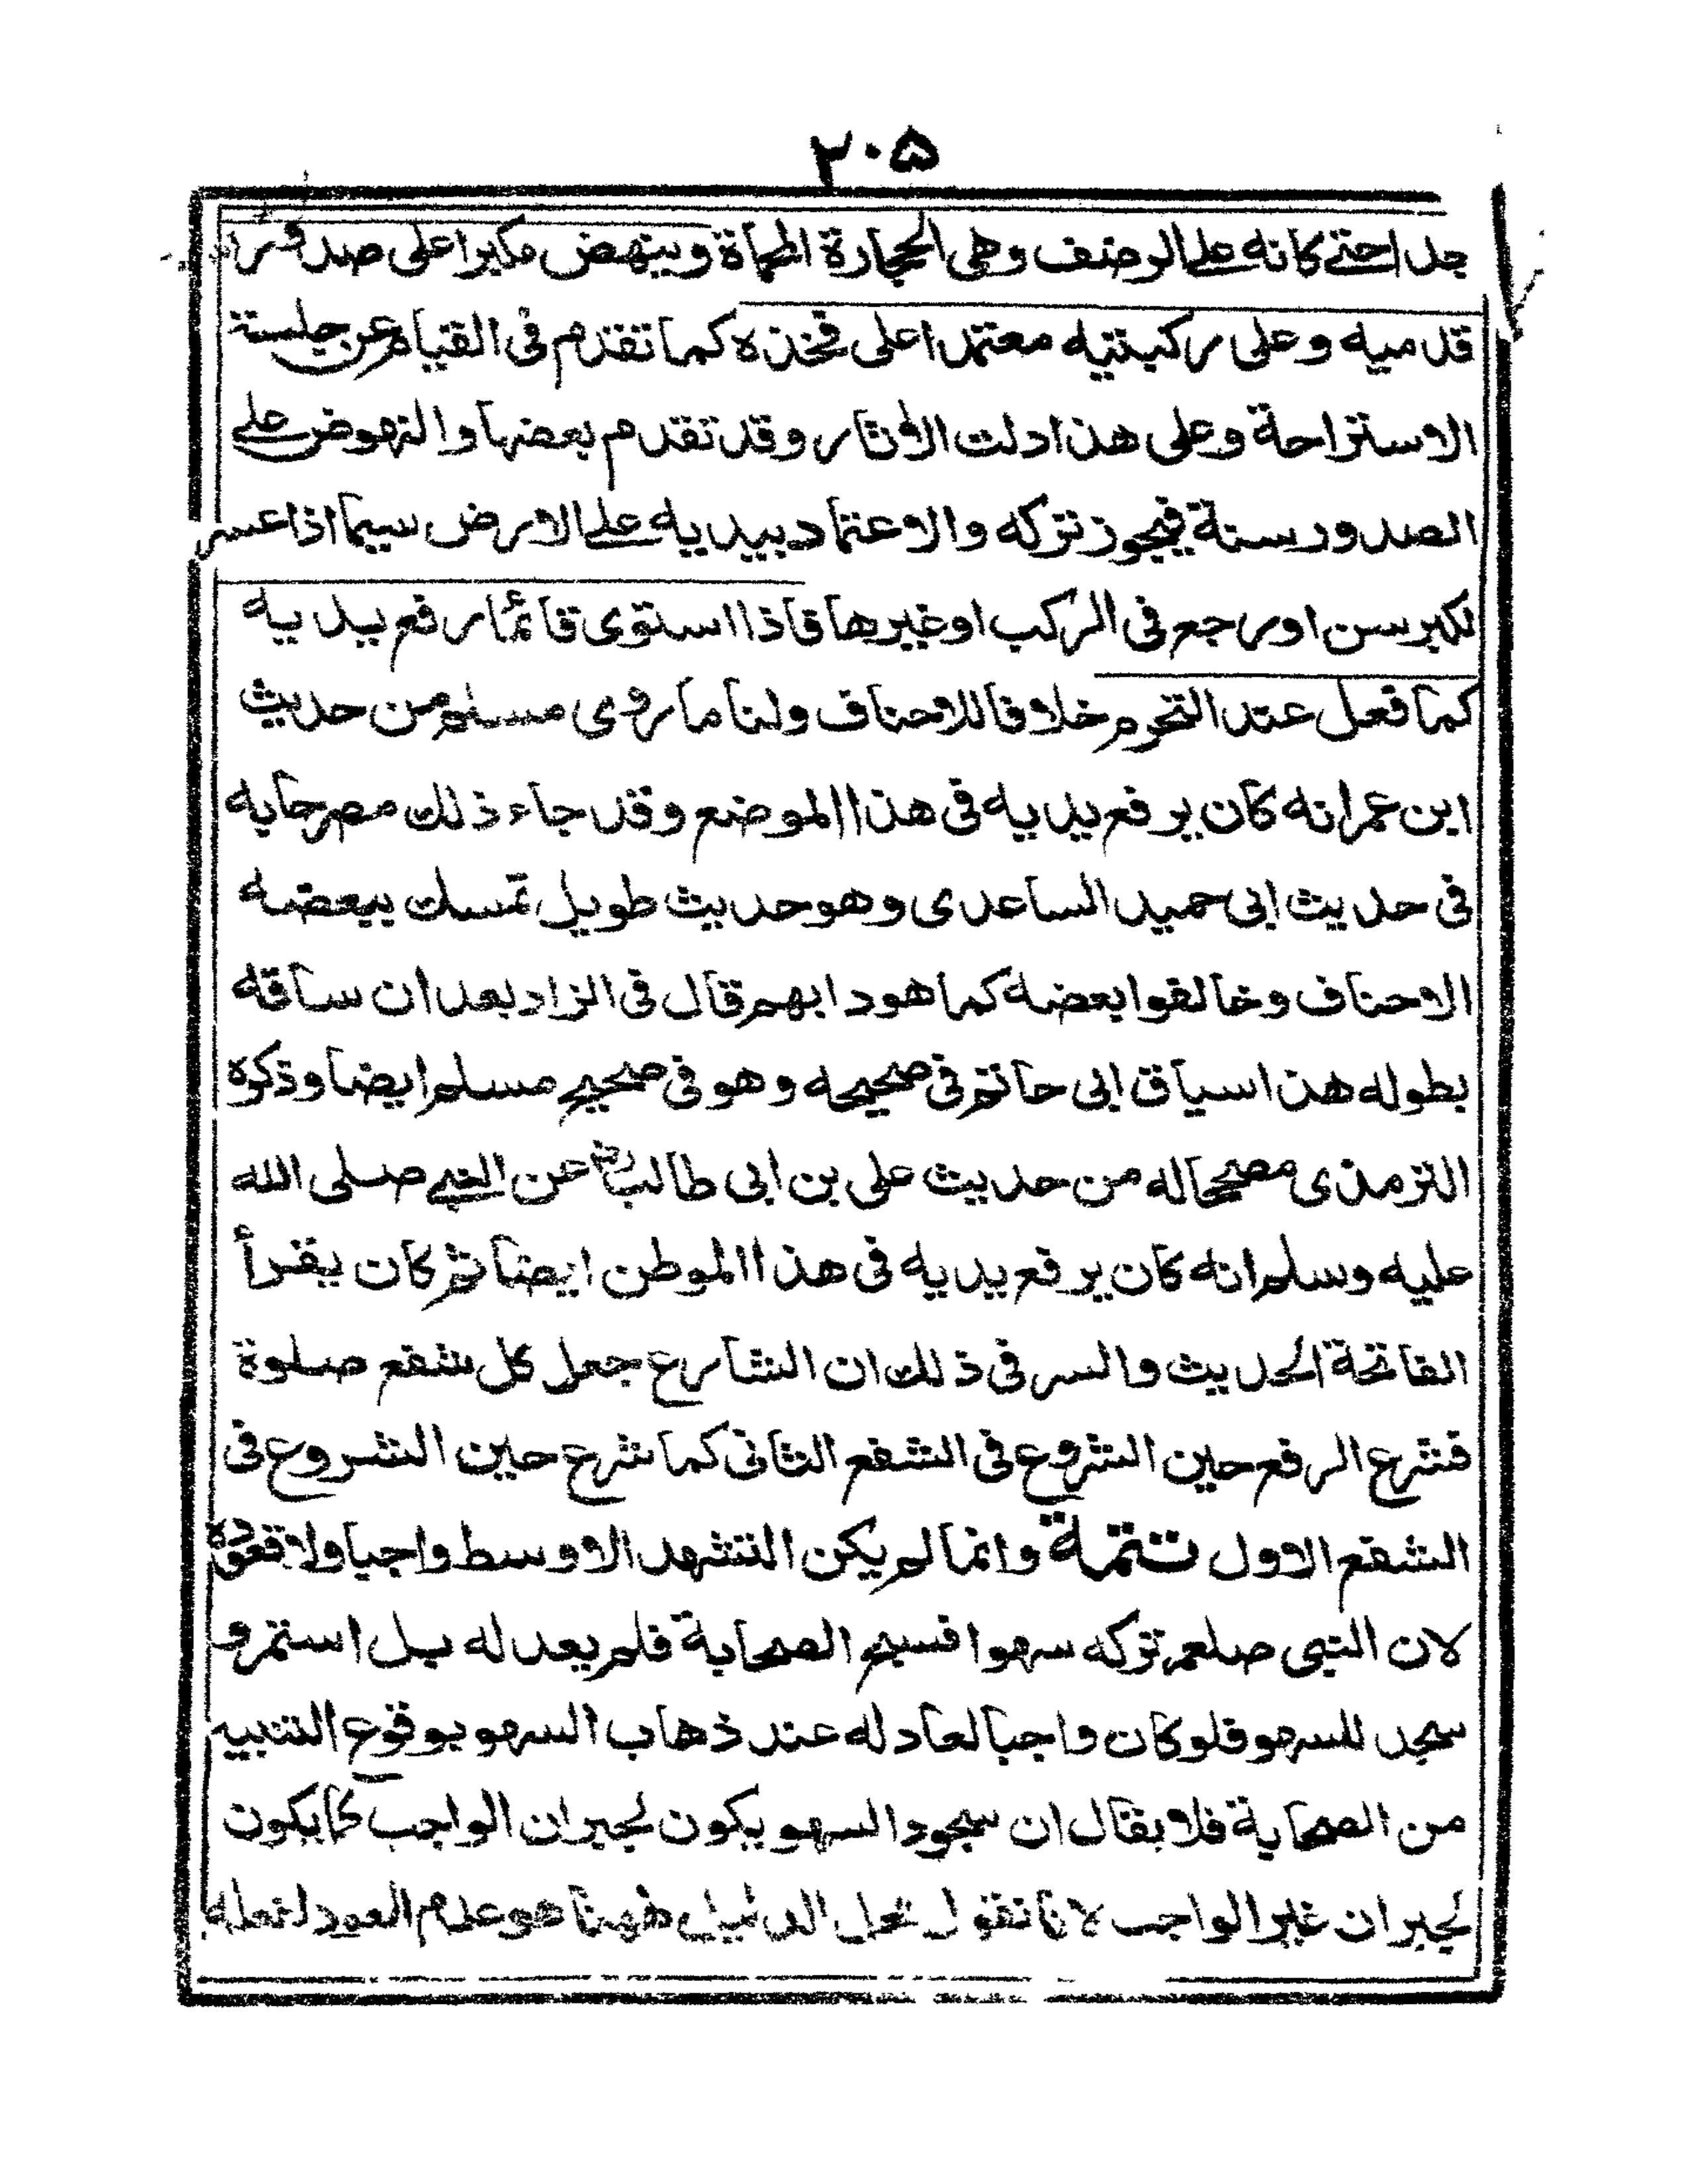 ٢٠٥
جدا حتے كانه علے الرضف وهى الحجارة المحماة وينهض مكبرا على صدور
قدميه وعلى ركبتيه معتمدا على فخذه كما تقدم فى القيام عن جلسة
الاستراحة وعلى هذا دلت الأثار وقد تقدم بعضها والنهوض علے
الصدور سنة فيجوز تركه والاعتماد بيديه علے الارض سيما اذا عسر
لكبر سن او رجع فى الركب او غيرها فاذا استوى قائما رفع يديه
كما فعل عند التحرم خلافا للاحناف ولنا ما روى مسلم من حديث
ابن عمر انه كان يرفع يديه فى هذا الموضع وقد جاء ذلك مصرحا به
فى حديث ابى حميد الساعدى وهو حديث طويل تمسك ببعضه
الاحناف وخالفوا بعضه كما هو دابهم قال فى الزاد بعد ان ساقه
بطوله هذا سياق ابى حاتم فى صحيحه وهو فى صحيح مسلم ايضا وذكره
الترمذى مصححا له من حديث على بن ابى طالب رض عن النبے صلى الله
عليه وسلم انه كان يرفع يديه فى هذا الموطن ايضا ثم كان يقرأ
الفاتحة الحديث والسر فى ذلك ان الشارع جعل كل شفع صلوة
فشرع الرفع حين الشروع فى الشفع الثانى كما شرع حين الشروع فى
الشفع الاول تتمة وانما لم يكن التشهد الاوسط واجبا ولا قعوده
لان النبى صلعم تركه سهوا فسبح الصحابة فلم يعد له بل استمر و
سجد للسهو فلو كان واجبا لعاد له عند ذهاب السهو بوقوع التنبيه
من الصحابة فلا يقال ان سجود السهو يكون لجبران الواجب كما يكون
لجبران غير الواجب لانا نقول محل الدليل ههنا هو عدم العود لفعله